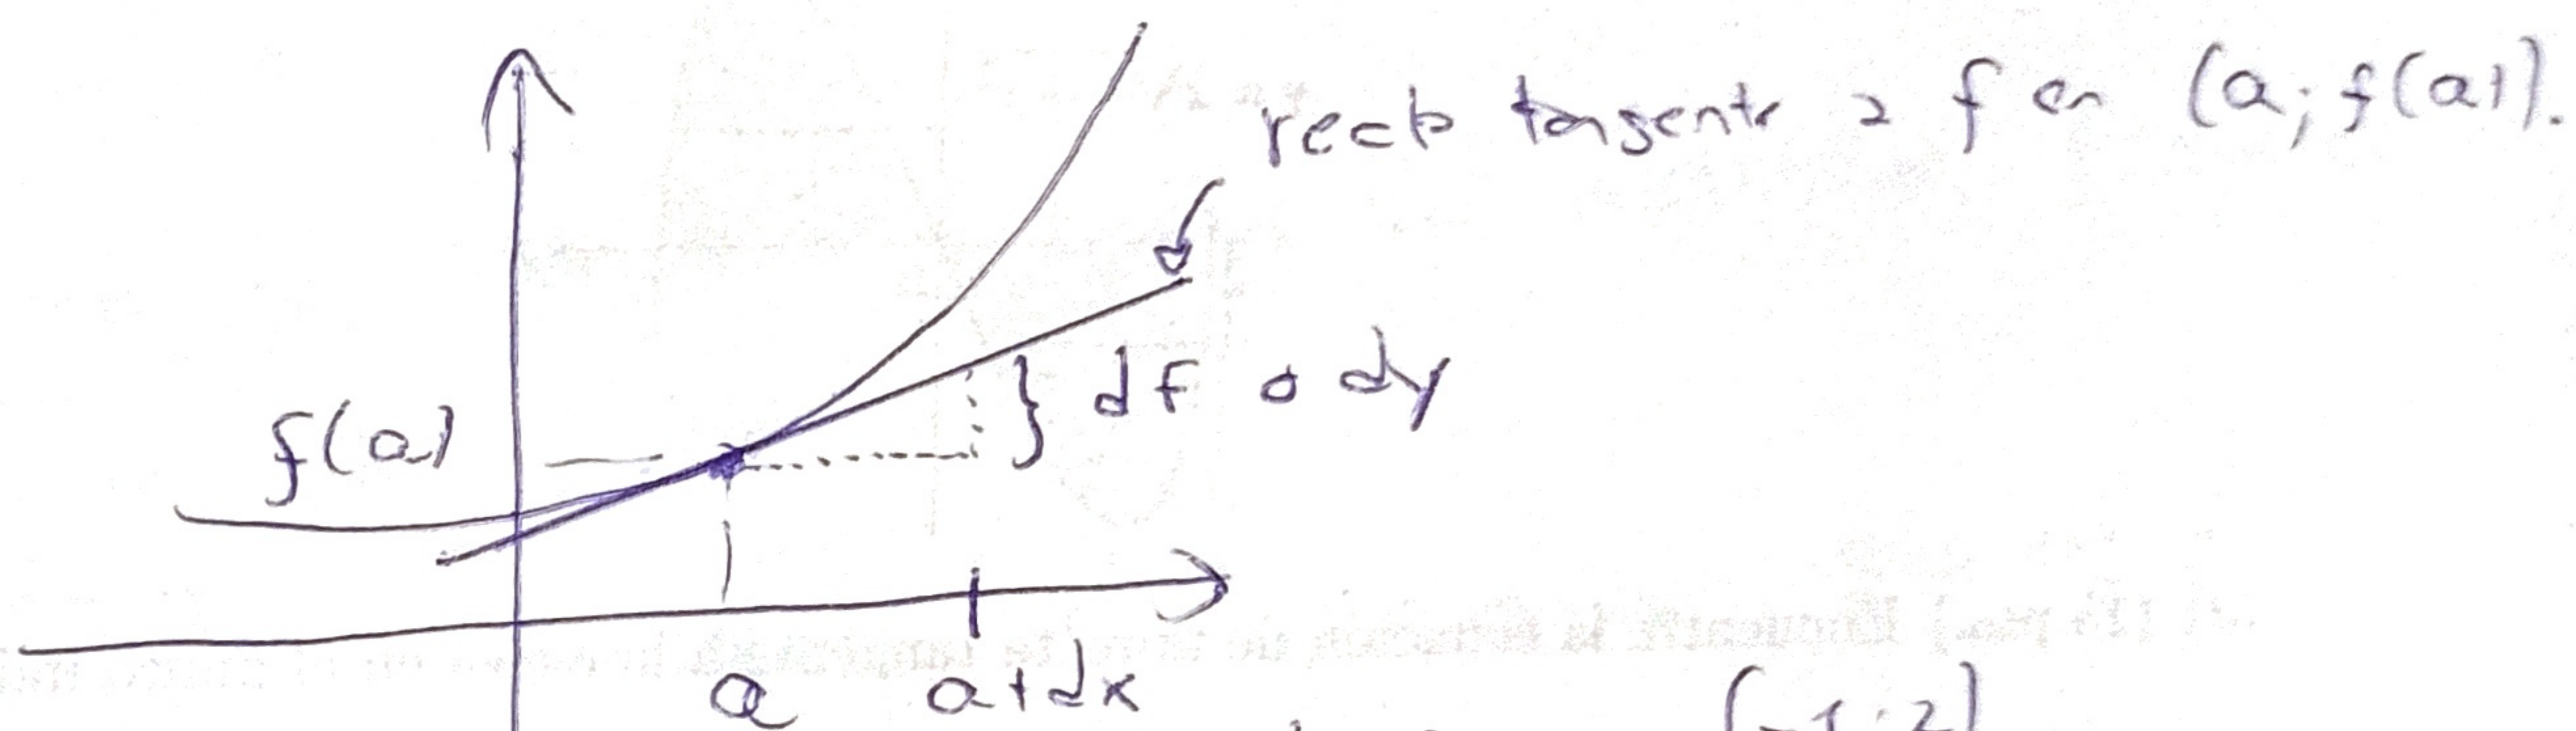 recta tangente a f en (a; f(a)).
} df o dy
f(a)
a a+dx
(-1; 2)